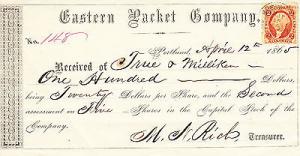 Eastern Packet Company,
No. 148
Portland, April 12th 1865
Received of True & Milliken
One Hundred Dollars,
being Twenty Dollars per Share, and the Second
assessment on Five Shares in the Capital Stock of the
Company.
M. N. Rich Treasurer.